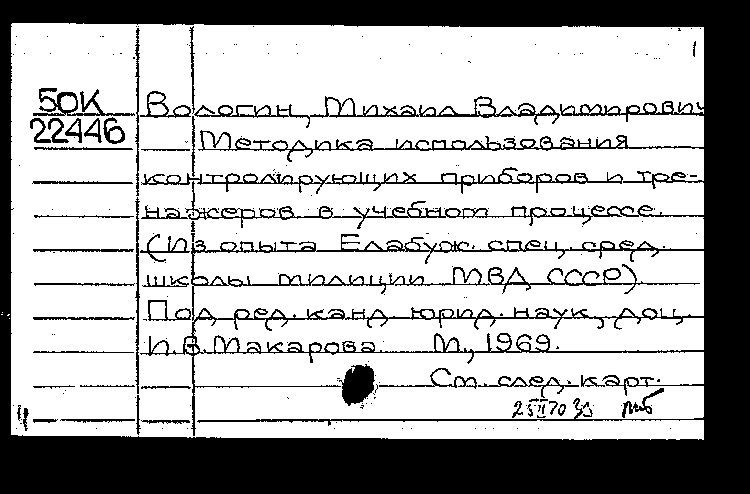 1
50К Вологин, Михаил Владимирович
22446 Методика использования
контролирующих приборов и тре-
нажеров в учебном процессе.
(Из опыта Елабуж. спец. сред.
школы милиции МВД СССР)
Под ред. канд. юрид. наук, доц.
И.В. Макарова М., 1969.
См. след. карт.